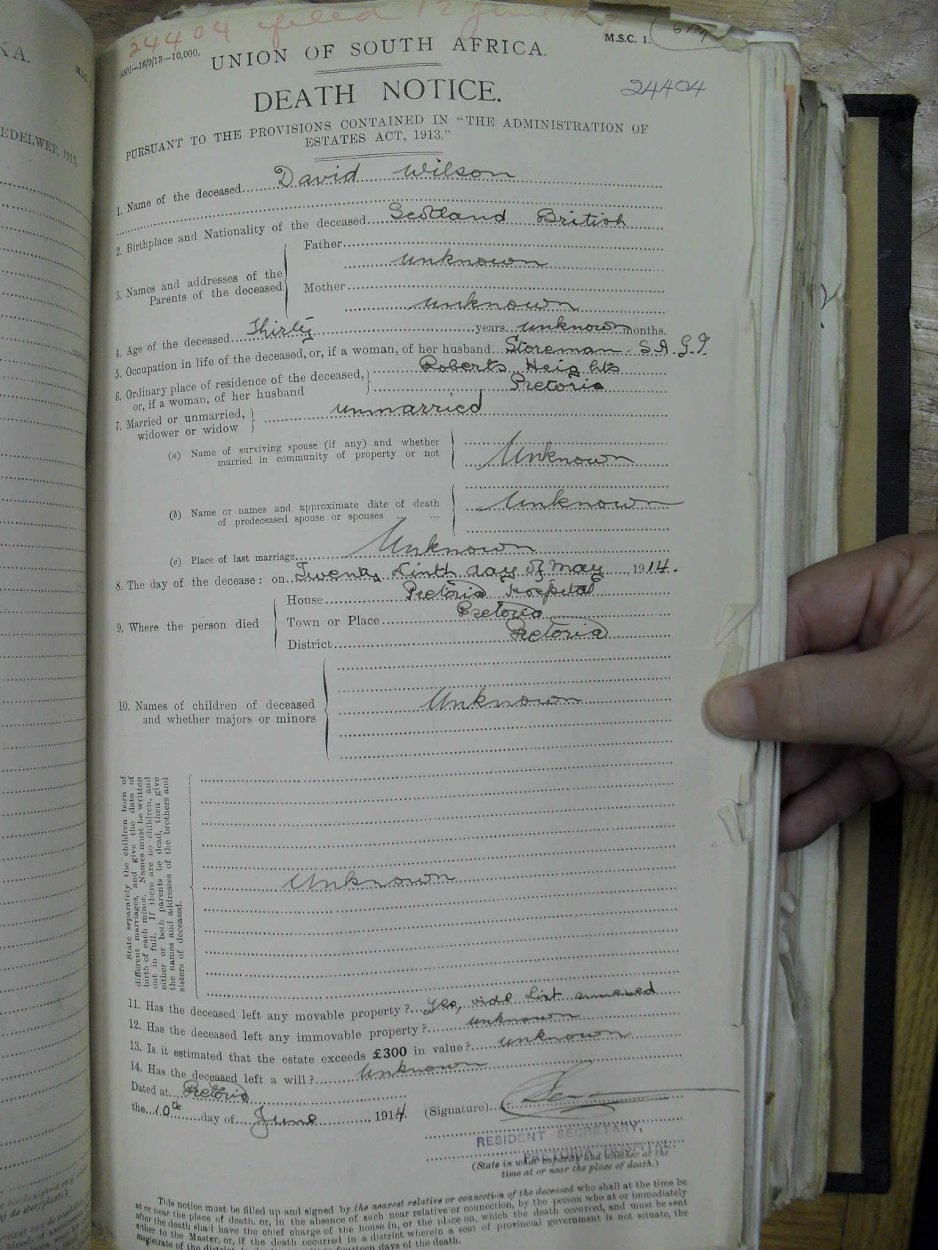 24404 filed 12 June
6801—16/9/13—10,000.
M.S.C. 1.
UNION OF SOUTH AFRICA.
24404
DEATH NOTICE.
PURSUANT TO THE PROVISIONS CONTAINED IN "THE ADMINISTRATION OF
ESTATES ACT, 1913."
1. Name of the deceased David Wilson
2. Birthplace and Nationality of the deceased Scotland British
3. Names and addresses of the Parents of the deceased
Father
unknown
Mother
unknown
4. Age of the deceased Thirty years unknown months.
5. Occupation in life of the deceased, or, if a woman, of her husband Storeman S.A.G.I
6. Ordinary place of residence of the deceased, or, if a woman, of her husband
Roberts Heights
Pretoria
7. Married or unmarried, widower or widow
unmarried
(a) Name of surviving spouse (if any) and whether
married in community of property or not
Unknown
(b) Name or names and approximate date of death
of predeceased spouse or spouses
Unknown
(c) Place of last marriage Unknown
8. The day of the decease: on Twenty Ninth day of May, 1914.
9. Where the person died
House Pretoria Hospital
Town or Place Pretoria
District Pretoria
10. Names of children of deceased
and whether majors or minors
Unknown
State separately the children born of
different marriages, and give the date of
birth of each minor. Names must be written
out in full. If there are no children, and
either or both parents be dead, then give
the names and addresses of the brothers and
sisters of deceased.
Unknown
11. Has the deceased left any movable property? Yes, vide List annexed
12. Has the deceased left any immovable property? unknown
13. Is it estimated that the estate exceeds £300 in value? unknown
14. Has the deceased left a will? Unknown
Dated at Pretoria
the 10th day of June, 1914.
(Signature)
RESIDENT SECRETARY,
PRETORIA HOSPITAL
(State in what capacity and whether at the
time at or near the place of death.)
This notice must be filled up and signed by the nearest relative or connection of the deceased who shall at the time be
at or near the place of death, or, in the absence of such near relative or connection, by the person who at or immediately
after the death shall have the chief charge of the house in, or the place on, which the death occurred, and must be sent
either to the Master, or, if the death occurred in a district wherein a seat of provincial government is not situate, the
magistrate of the district days of the death.
KA.
EDELWET, 1913.